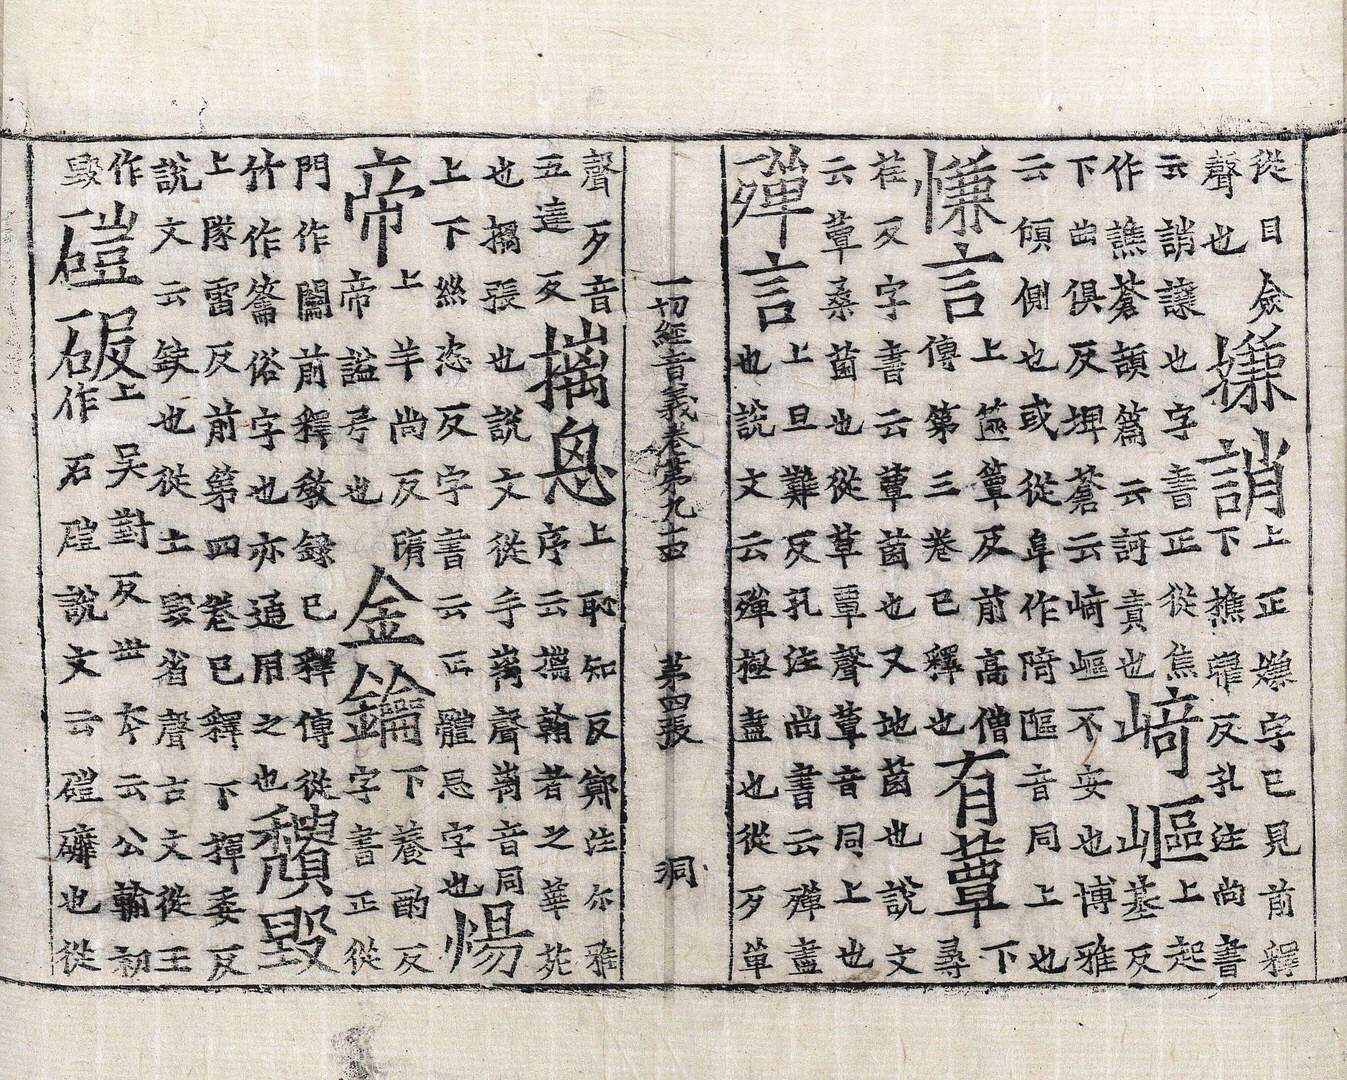 從目僉
聲也
嫌誚
上正嫌字已見前釋
下樵曜反孔注尚書
云誚讓也字書正從焦
作譙蒼頡篇云訶責也
崎嶇
上起
基反
下曲俱反埤蒼云崎嶇不安也博雅
云傾側也或從阜作陭䧢音同上也
慊言
上簟反前高僧
傳第三卷已釋也
有蕈
下
尋
荏反字書云蕈菌也又地菌也說文
云蕈桑菌也從草覃聲草音同上也
殫言
上旦難反孔注尚書云殫盡
也說文云殫極盡也從歹單
一切經音義卷第九十四 第四張 洞
聲歹音
五達反
摛
上恥知反鄭注尔雅
序云摛翰者之華苑
也摛張也說文從手离聲离音同
上下恣反字書云正體字也
煬
帝
上羊尚反隋
帝謚号也
金鑰
下養酌反
字書正從
門作闟前釋教錄已釋傳從
竹作籥俗字也亦通用之也
穨毀
上隊雷反前第四卷已釋下揮委反
說文云缺也從土毇省聲古文從壬
作
毀
磑
上吳對反世本云公輸初
作石磑說文云磑䃺也從